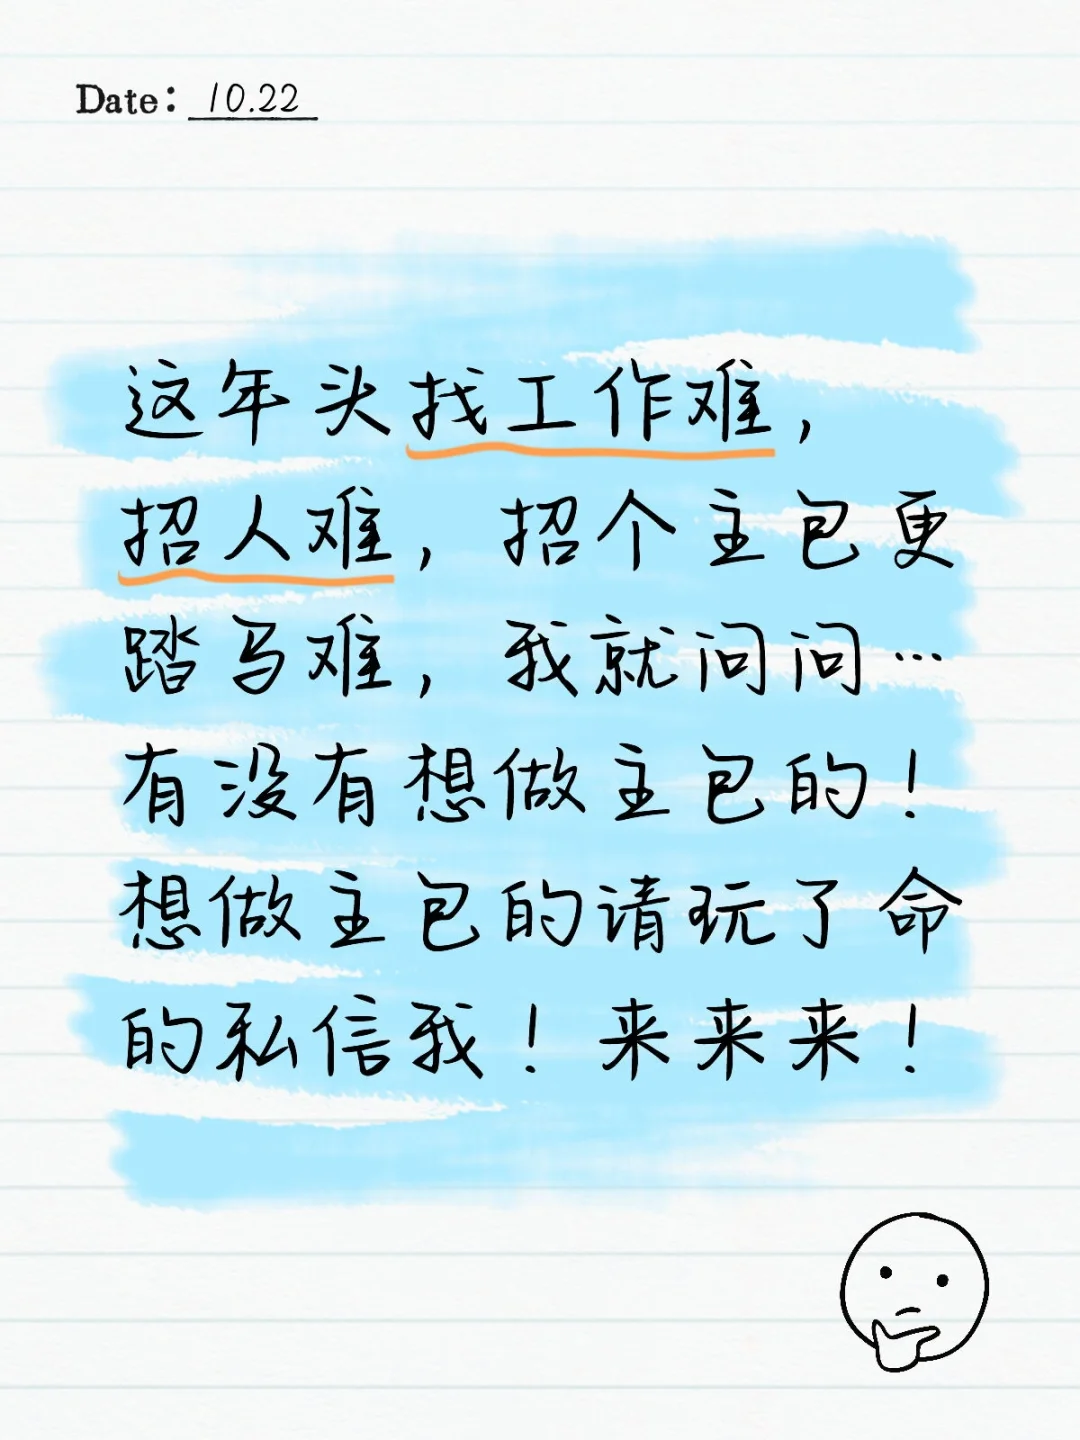 Date: 10.22
这年头找工作难,
招人难,招个主包更
踏马难,我就问问…
有没有想做主包的!
想做主包的请玩了命
的私信我!来来来!